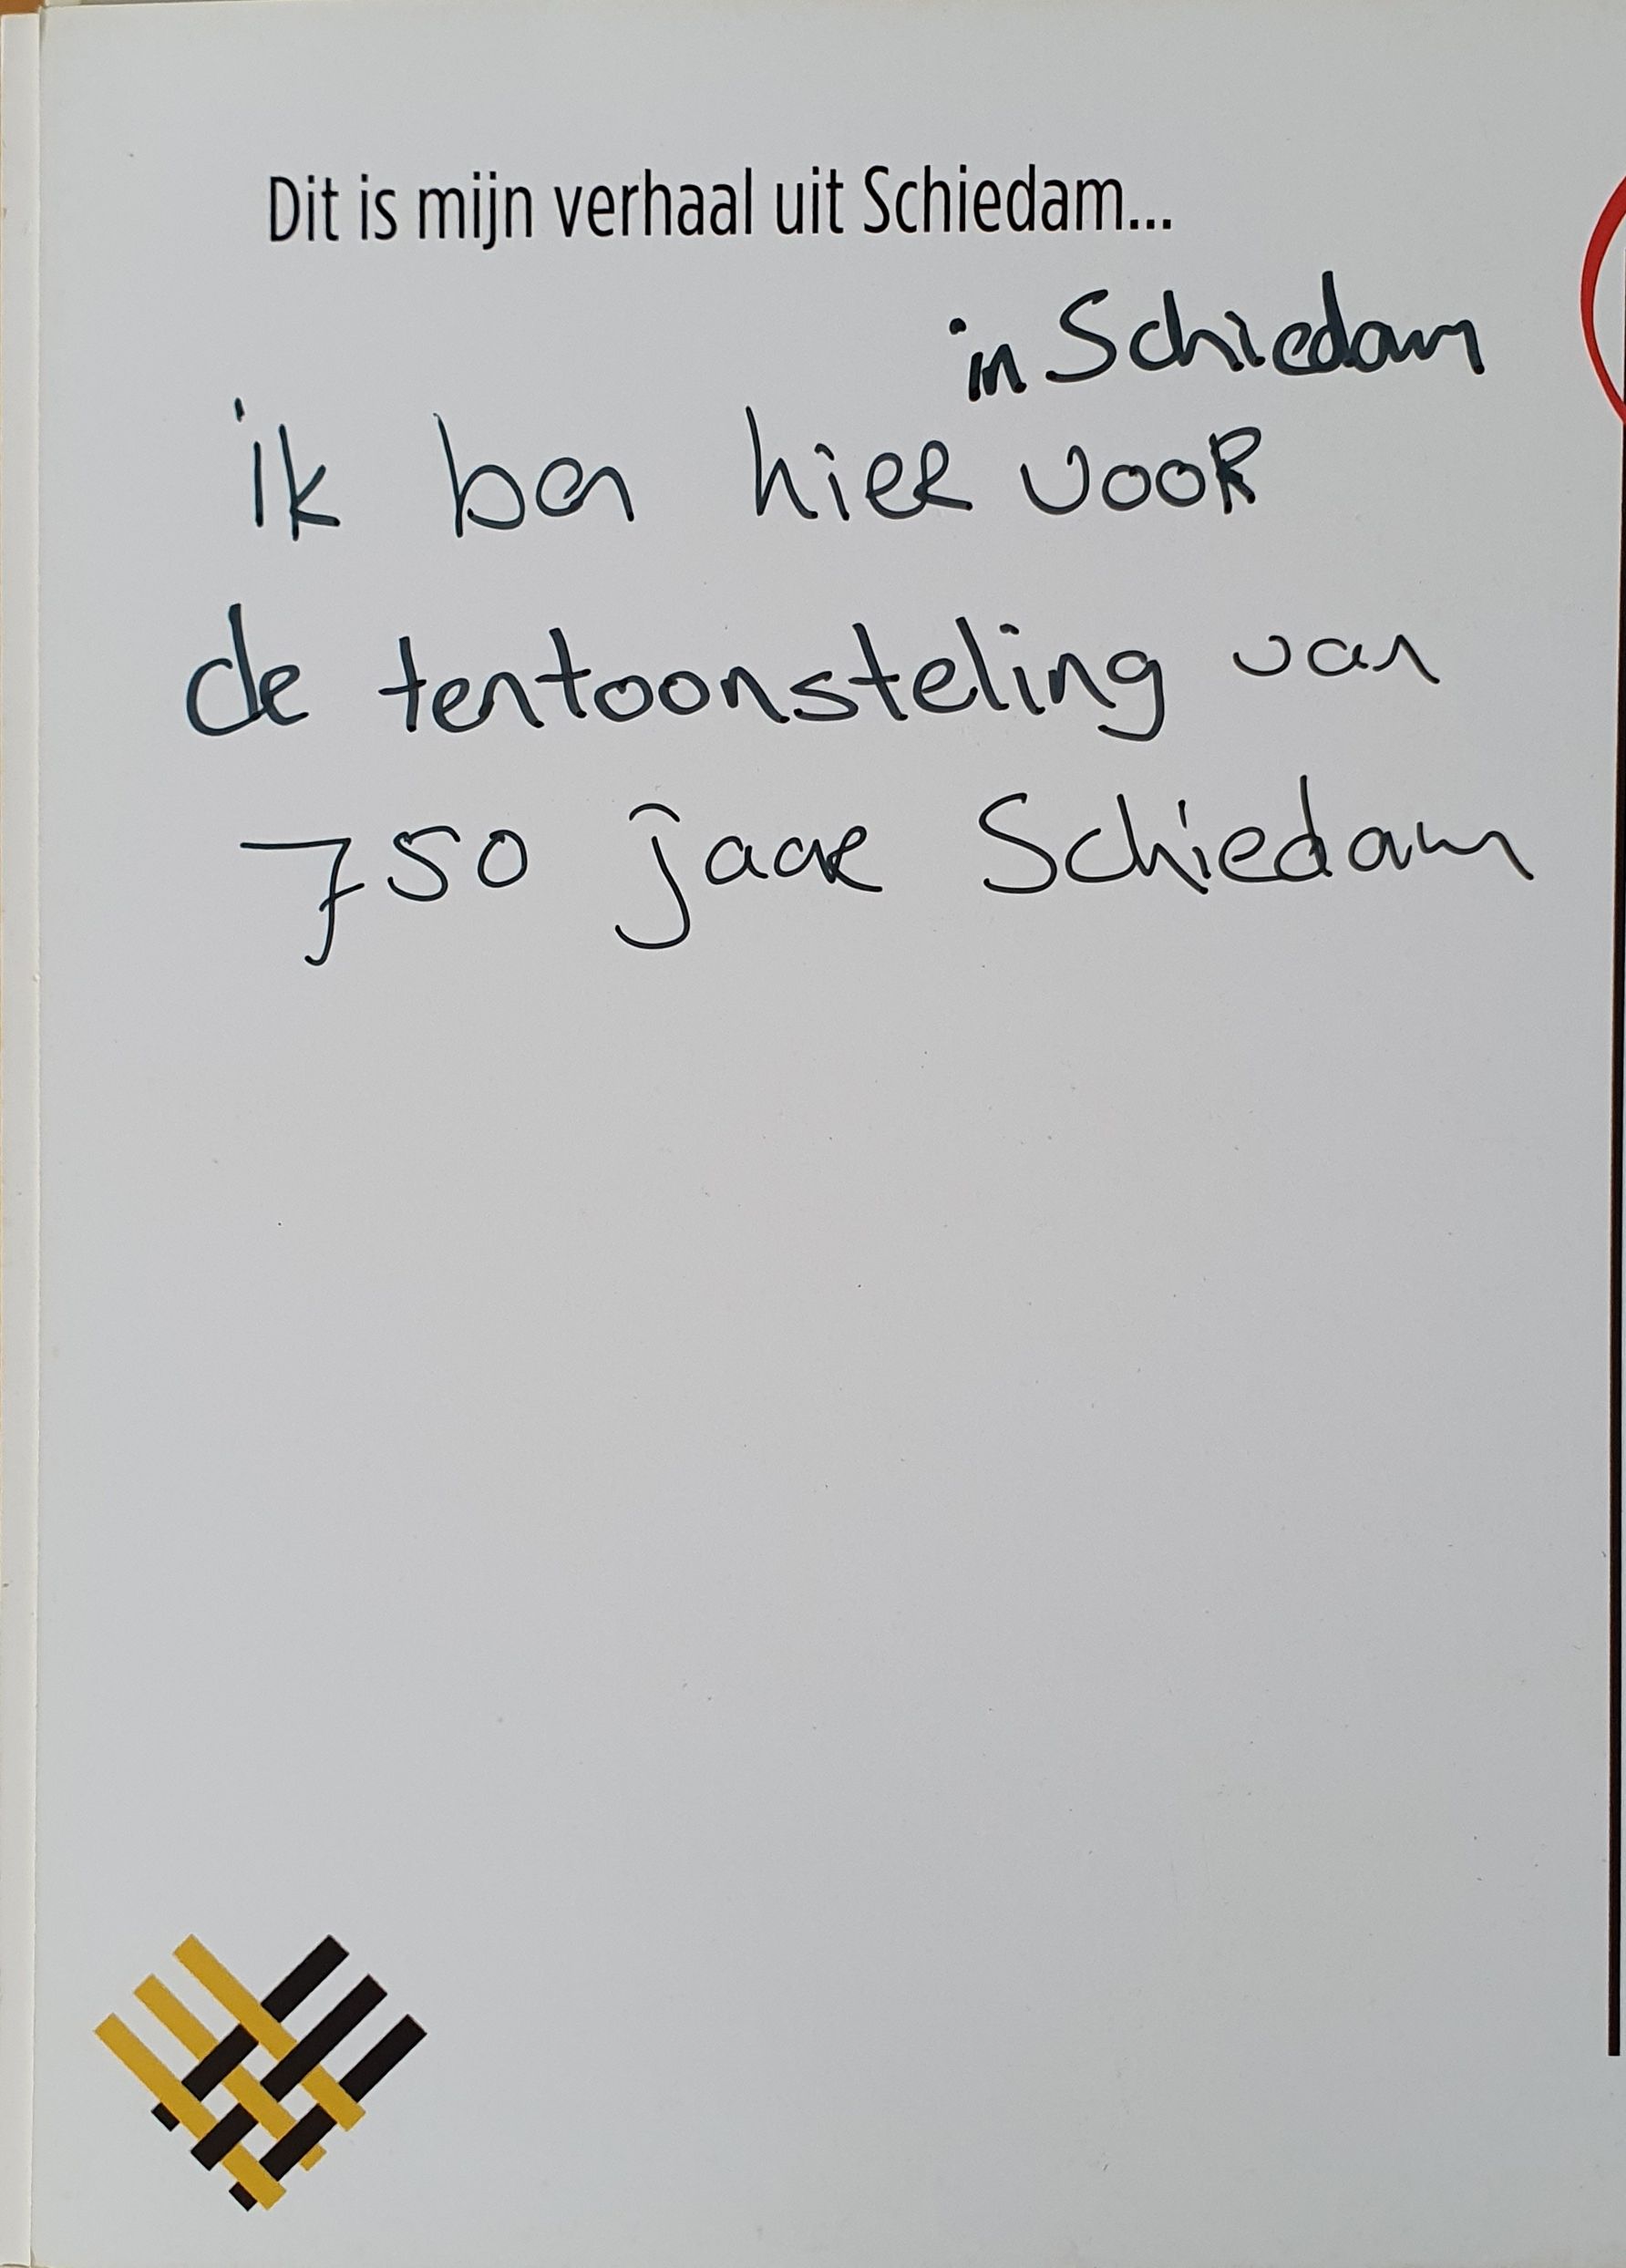 Dit is mijn verhaal uit Schiedam...
in Schiedam
ik ben hier voor
de tentoonsteling van
750 jaar Schiedam